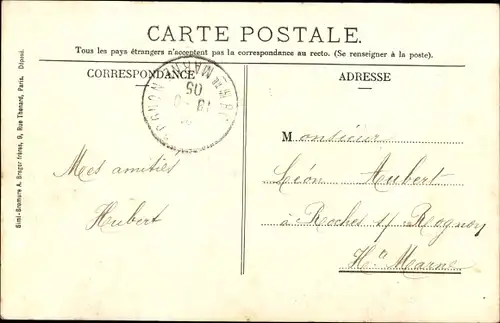 CARTE POSTALE.
Tous les pays étrangers n'acceptent pas la correspondance au recto. (Se renseigner à la poste).
CORRESPONDANCE
ADRESSE
Simi-Bromure A. Breger frères, 9, Rue Thenard, Paris. Déposé.
05
Mes amitiés
Hubert
Monsieur
Léon Aubert
à Roches s/ Rognon
Hte Marne